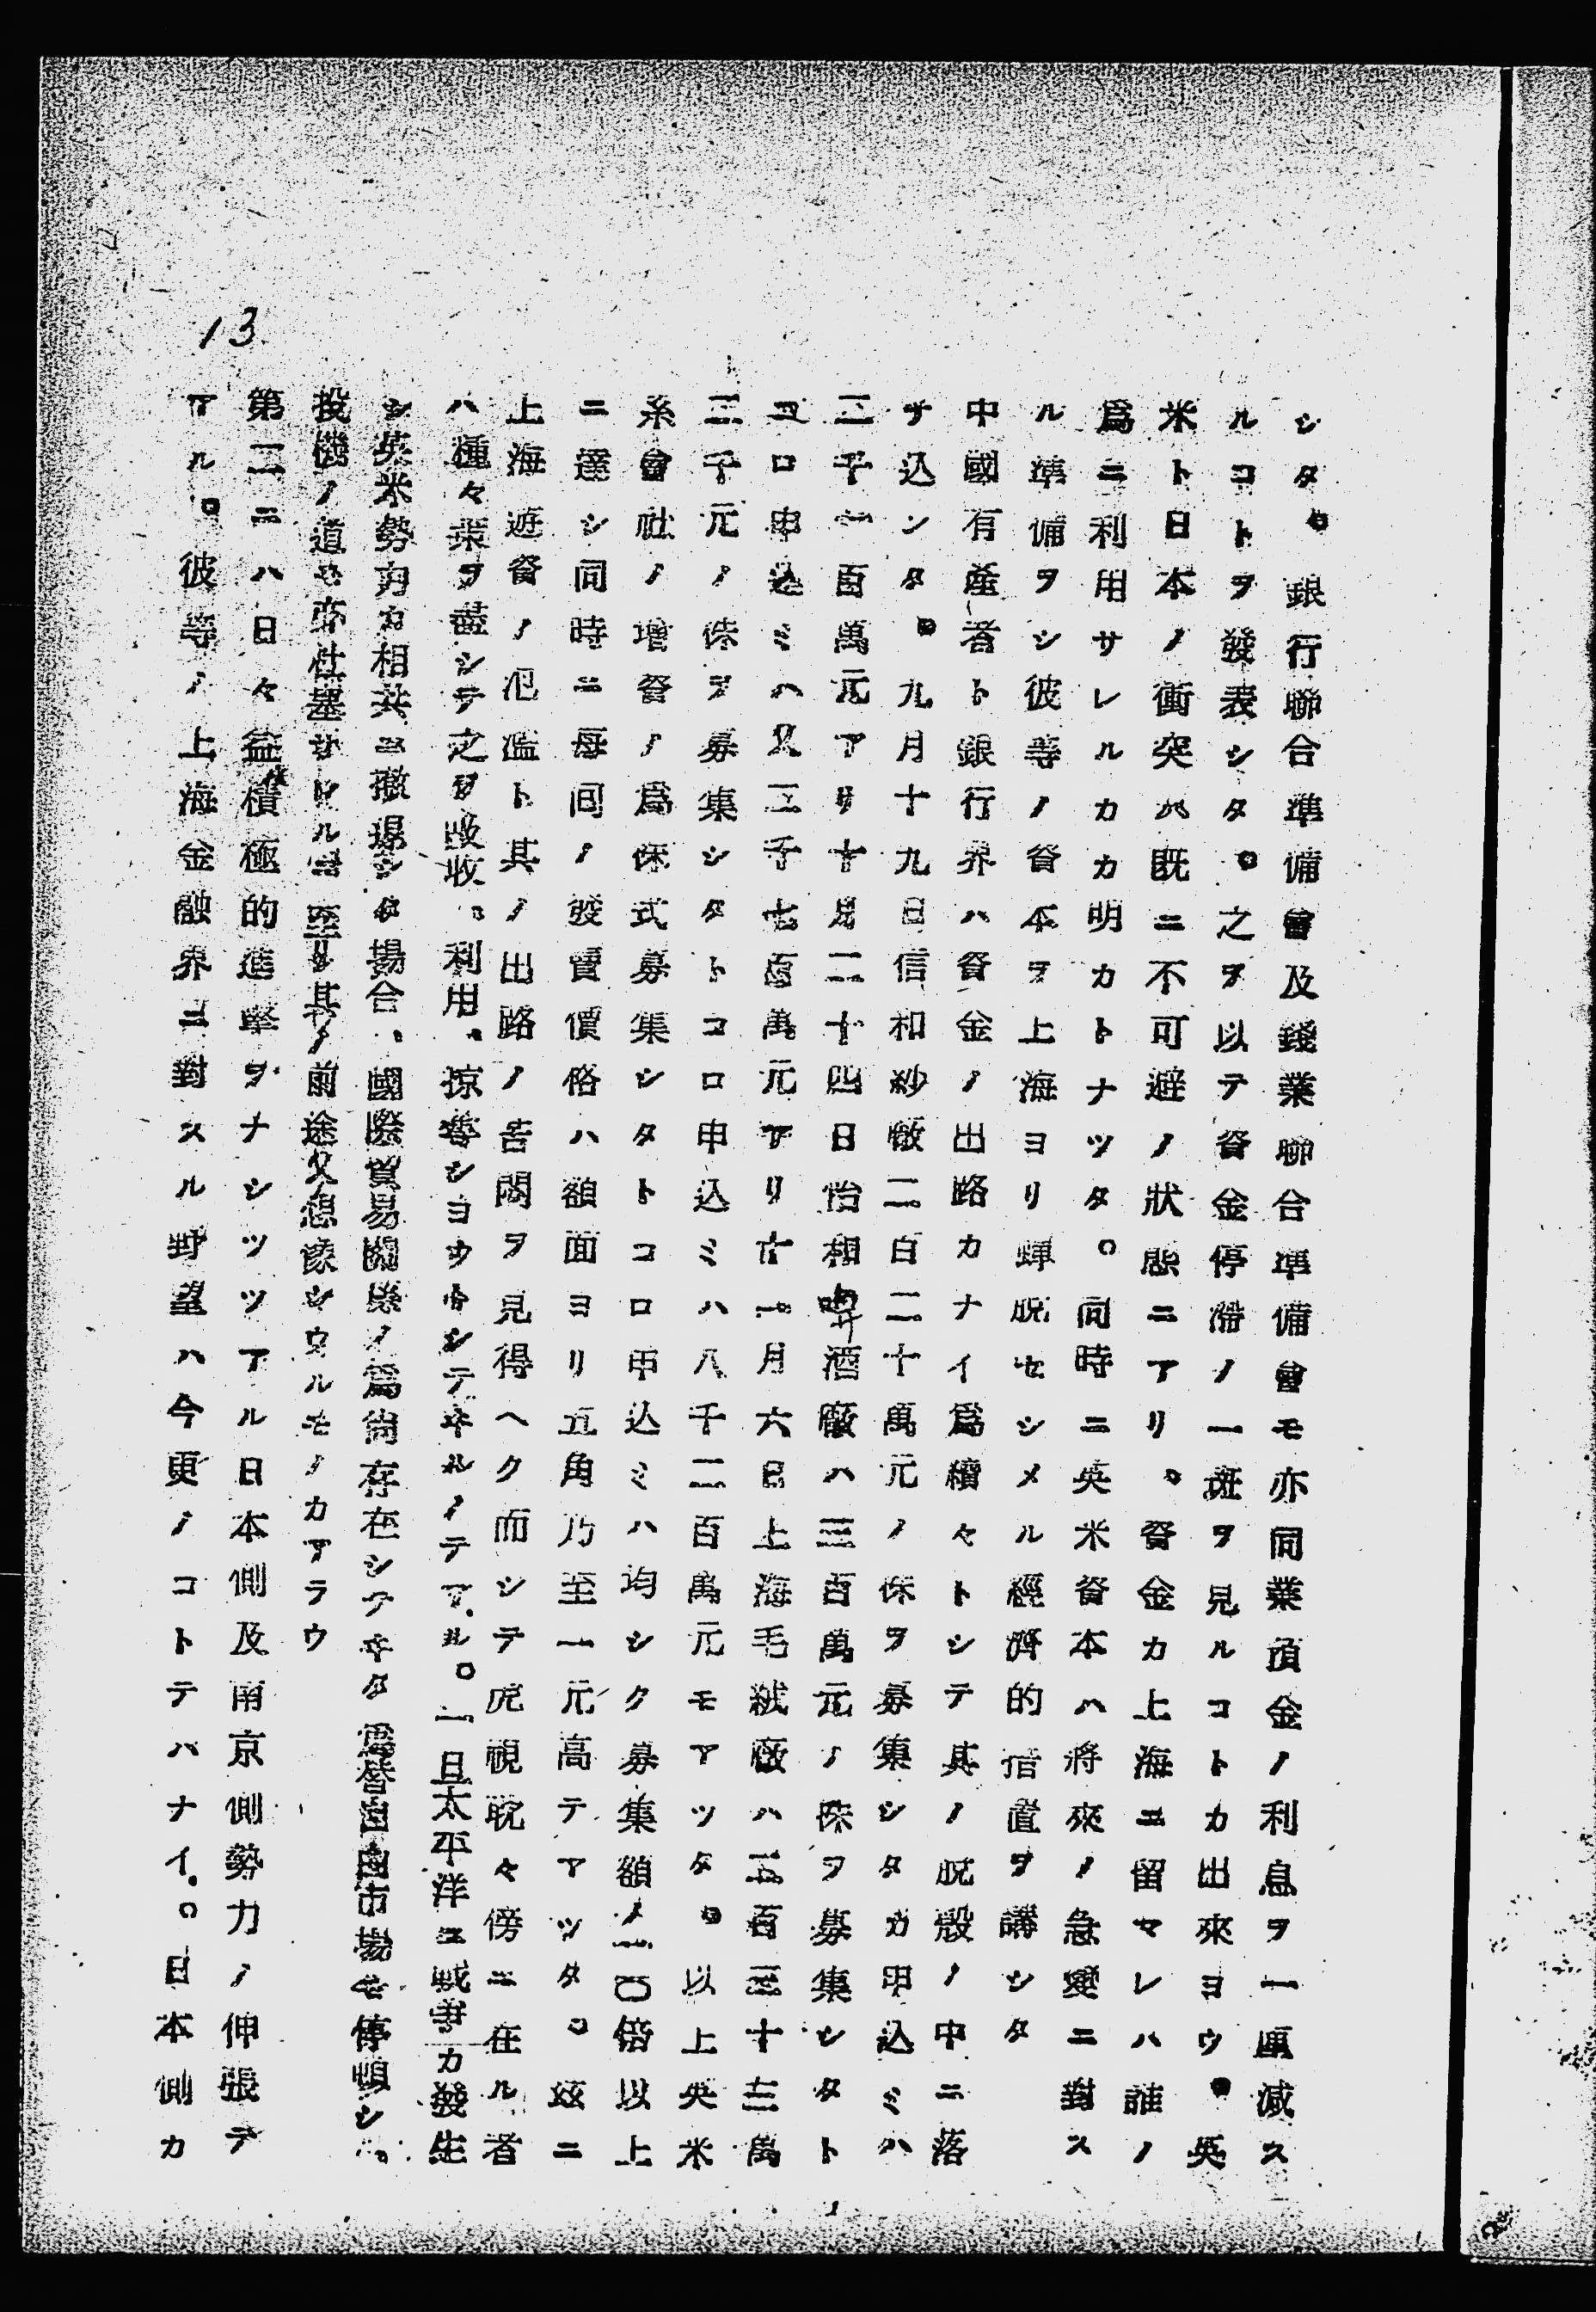 13
シタ。銀行聯合準備會及錢業聯合準備會モ亦同業預金ノ利息ヲ一厘減ス
ルコトヲ發表シタ。之ヲ以テ資金停滯ノ一斑ヲ見ルコトカ出來ヨウ。英
米ト日本ノ衝突ハ既ニ不可避ノ狀態ニアリ。資金カ上海ニ留マレハ誰ノ
爲ニ利用サレルカカ明カトナツタ。同時ニ英米資本ハ將來ノ急變ニ對ス
ル準備ヲシ彼等ノ資本ヲ上海ヨリ蟬脱セシメル經濟的措置ヲ講シタ
中國有產者ト銀行界ハ資金ノ出路カナイ爲續々トシテ其ノ脱殼ノ中ニ落
サ込ンタ。九月十九日信和紗廠二百二十萬元ノ株ヲ募集シタカ申込ミハ
二千一百萬元アリ十月二十四日怡和啤酒廠ハ三百萬元ノ株ヲ募集シタト
コロ申込ミハ又二千七百萬元アリ十一月六日上海毛絨廠ハ五百三十三萬
三千元ノ株ヲ募集シタトコロ申込ミハ八千二百萬元モアツタ。以上英米
系會社ノ增資ノ爲株式募集シタトコロ申込ミハ均シク募集額ノ一〇倍以上
ニ達シ同時ニ每間ノ發賣價格ハ額面ヨリ五角乃至一元高テアツタ。玆ニ
上海遊資ノ氾濫ト其ノ出路ノ苦悶ヲ見得ヘク而シテ虎視眈々傍ニ在ル者
ハ種々策ヲ盡シテ之ヲ吸收、利用、掠奪シヨウトシテヰルノテアル。一旦太平洋ニ戰爭カ發生
シ英米勢力カ相共ニ撤退シタ場合、國際貿易關係ノ爲尚存在シテヰタ爲替自由市場モ停頓シ、
投機ノ道モ亦杜塞サレルニ至リ其ノ前途又想像シウルモノカアラウ
第二ニハ日々益積極的進擊ヲナシツツアル日本側及南京側勢力ノ伸張テ
アル。彼等ノ上海金融界ニ對スル野望ハ今更ノコトテハナイ。日本側カ